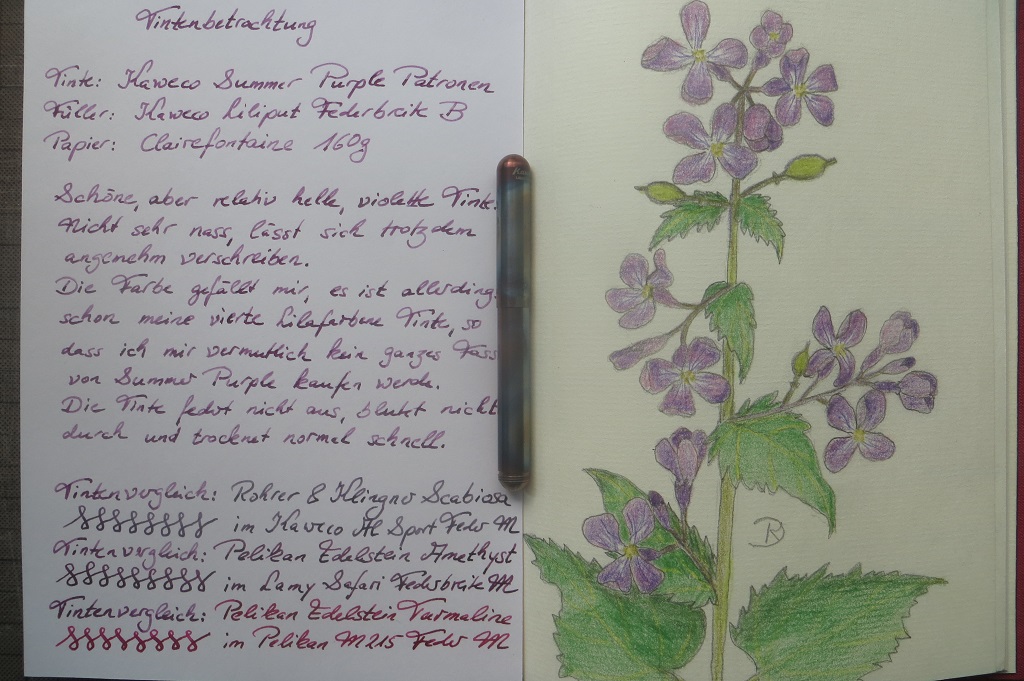 Tintenbetrachtung
Tinte: Kaweco Summer Purple Patronen
Füller: Kaweco Liliput Federbreite B
Papier: Clairefontaine 160g
Schöne, aber relativ helle, violette Tinte.
Nicht sehr nass, lässt sich trotzdem
angenehm verschreiben.
Die Farbe gefällt mir, es ist allerding
schon meine vierte lilafarbene Tinte, so
dass ich mir vermutlich kein ganzes Fass
von Summer Purple kaufen werde.
Die Tinte federt nicht aus, blutet nicht
durch und trocknet normal schnell.
Tintenvergleich: Rohrer & Klingner Scabiosa
im Kaweco Al Sport Feder M
Tintenvergleich: Pelikan Edelstein Amethyst
im Lamy Safari Federbreite M
Tintenvergleich: Pelikan Edelstein Turmaline
im Pelikan M215 Feder M